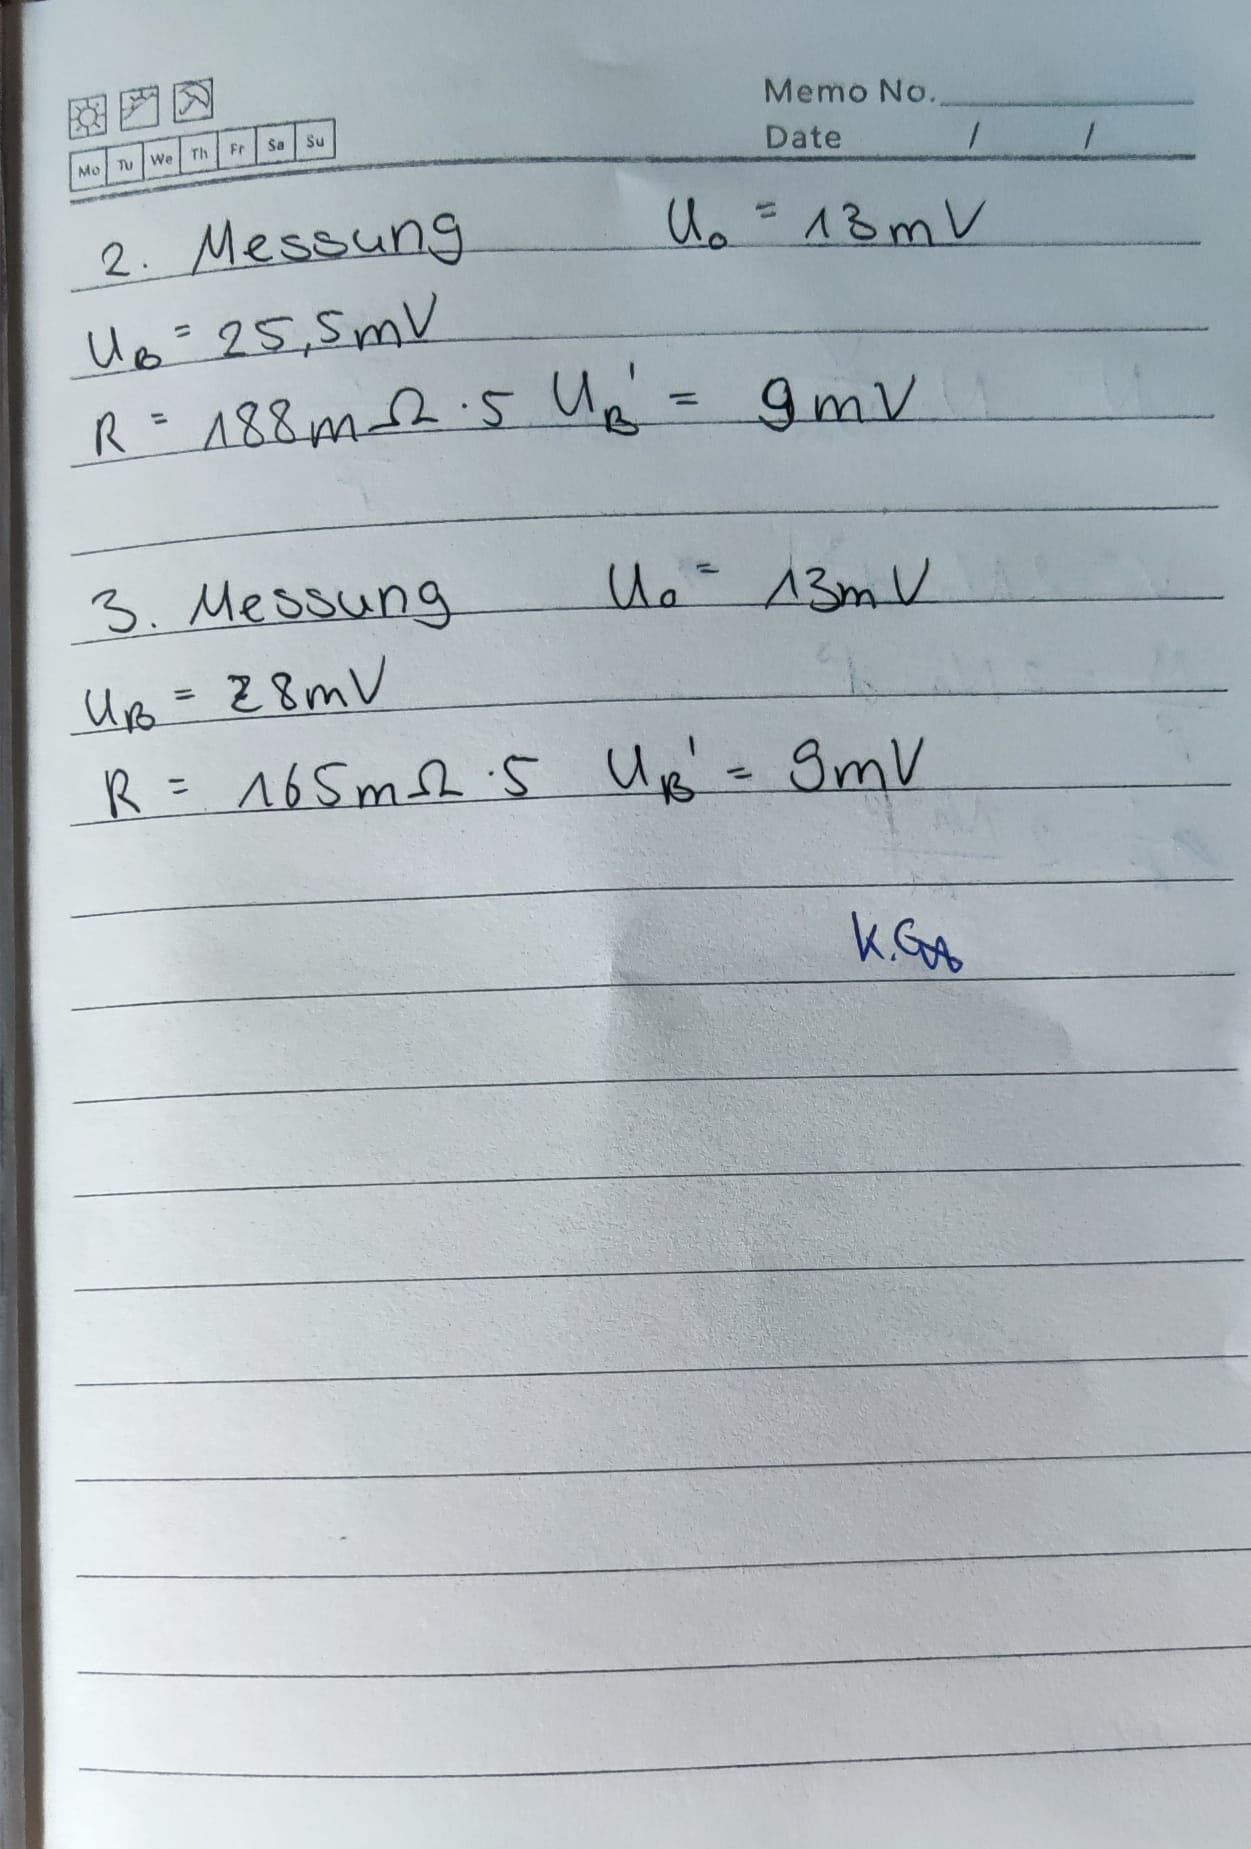 Memo No.
Mo Tu We Th Fr Sa Su
Date / /
2. Messung U₀ = 13mV
U_B = 25,5mV
R = 188mΩ·5 U_B' = 9mV
3. Messung U₀ = 13mV
U_B = 28mV
R = 165mΩ·5 U_B' = 9mV